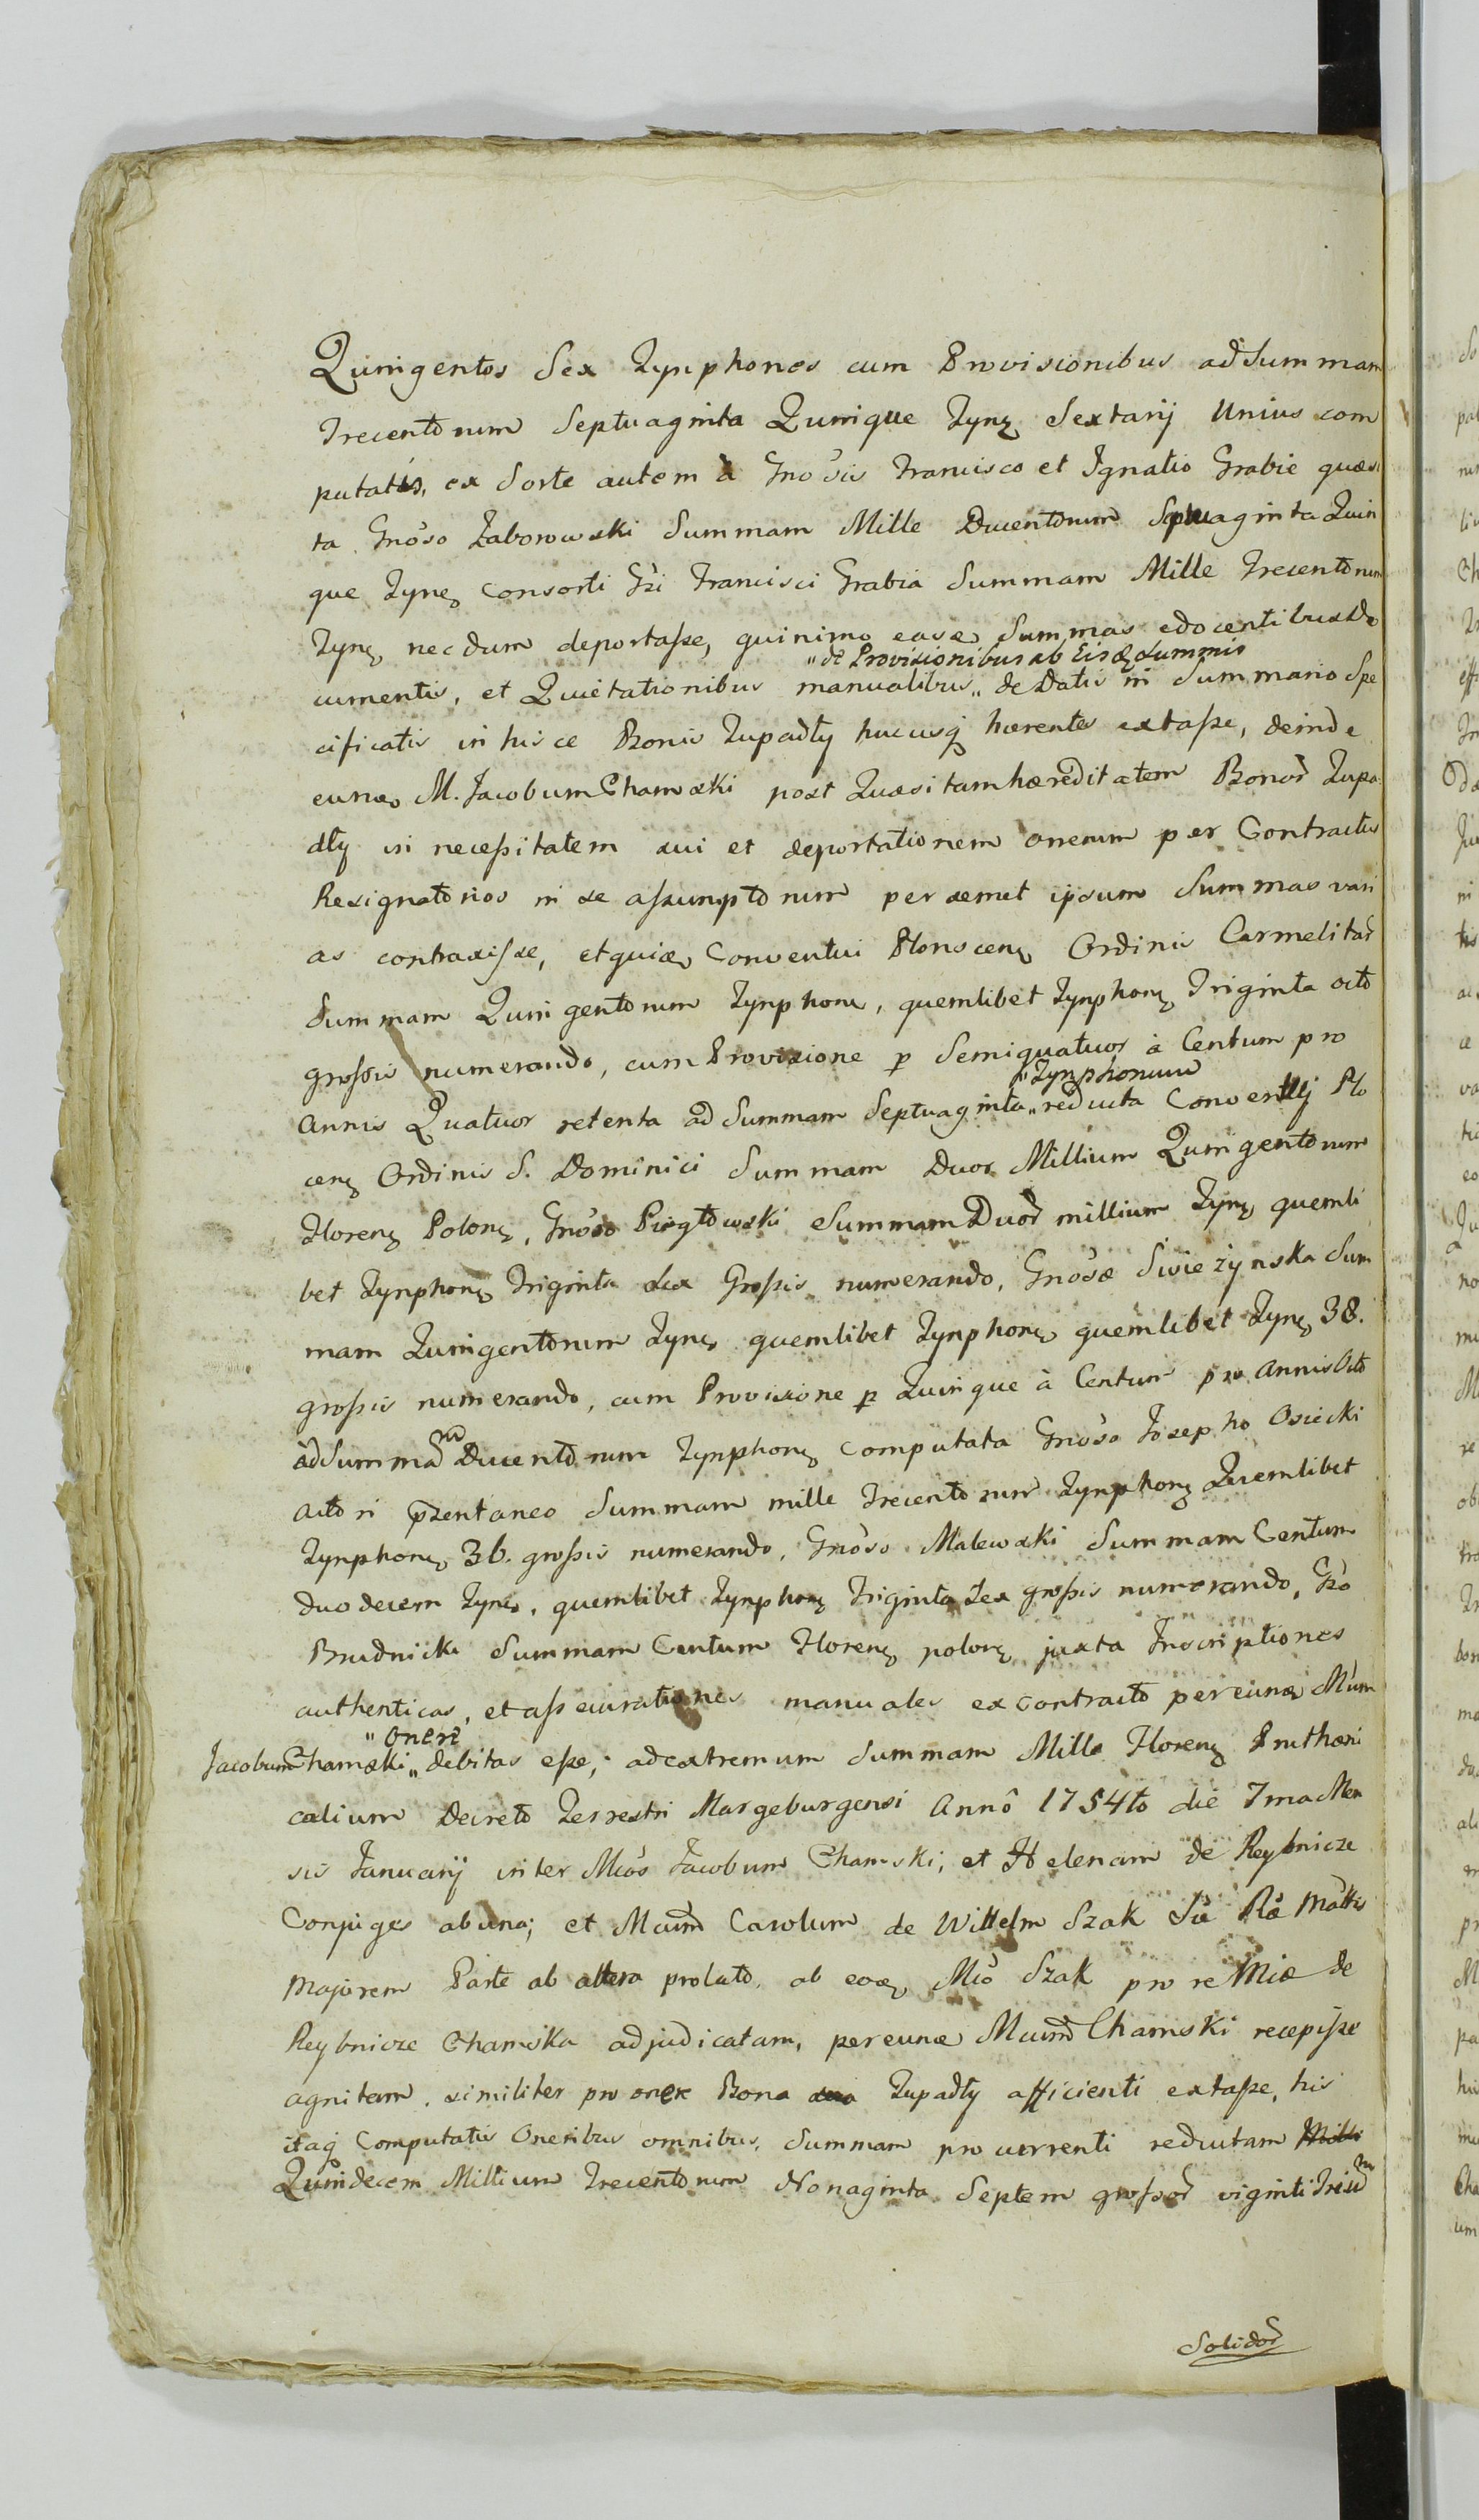 Quingentos Sex Tynphones cum Provisionibus ad Summam
Trecentorum Septuaginta Quinque Tynƺ Sextarij Unius com
putatis, ex Sorte autem à Gnosis Francisco et Ignatio Grabie quæsi
ta Gnoso Zaborowski Summam Mille Ducentorum Septuaginta Quin
que Tynƺ Consorti Gsi Francisci Grabia Summam Mille Trecentorum
Tynƺ necdum deportasse, quinimo easdƺ Summas edocentibus Do
„de Provisionibus ab Eisdƺ Summis
cumentis, et Quietationibus manualibus „ de Datis in Summario Spe
cificatis in hisce Bonis Zupadły hucusq hærentes extasse, deinde
eundƺ M. Jacobum Chamski post Quæsitam hæreditatem Bonor Zupa
dły in necessitatem sui et deportationem onerum per Contractus
Resignatorios in se assumptorum per semet ipsum Summas vari
as contraxisse, et quidƺ Conventui Plonscenƺ Ordinis Carmelitar
Summam Quingentorum Tynphonƺ, quemlibet Tynphonƺ Triginta octo
grossis numerando, cum Provisione p Semiquatuor à Centum pro
„Tynphonum
annis Quatuor retenta ad Summam Septuaginta „ reducta Conventuj Plo
cenƺ Ordinis S. Dominici Summam Duor Millium Quingentorum
Florenƺ Polonƺ, Gnoso Pigłowski Summam Duor millium Tynƺ quemli
bet Tynphonƺ Triginta sex Grossis numerando, Gnosæ Świeżynska Sum
mam Quingentorum Tynƺ quemlibet Tynphonƺ quemlibet Tynƺ 38.
grossis numerando, cum Provisione p Quinque à Centum pro annis Octo
ad Summam Ducentorum Tynphonƺ computata Gnoso Josepho Osiecki
actori pzentaneo Summam mille Trecentorum Tynphonƺ Quemlibet
Tynphonƺ 36. grossis numerando, Gnoso Malewski Summam Centum
duodecem Tynƺ, quemlibet Tynphonƺ Triginta sex grossis numerando, Gso
Brudnicki Summam Centum Florenƺ polonƺ juxta Inscriptiones
authenticas, et assecurationes manuales ex contracto per eundƺ Mum
„onere
Jacobum Chamski „ debitas esse; ad extremum Summam Mille Florenƺ Pruthæni
calium Decreto Terrestri Margeburgensi Annô 1754to die 7ma Men
sis Januarij inter Mcos Jacobum Chamski, et Helenam de Reybnicze
Conjuges ab una; et Mcum Carolum de Wittelm Szak Sæ Ræ Mattis
Majorem Parte ab altera prolato, ab eodƺ Mco Szak pro re Mcæ de
Reybnicze Chamska adjudicatam, per eundƺ Mcum Chamski recepisse
agnitam, similiter pro onere Bona sua Zupadły afficienti extasse, his
itaq Computatis Oneribus omnibus, Summam pro currenti reductam Milli
Quindecem Millium Trecentorum Nonaginta Septem grossor viginti Trium
Solidor